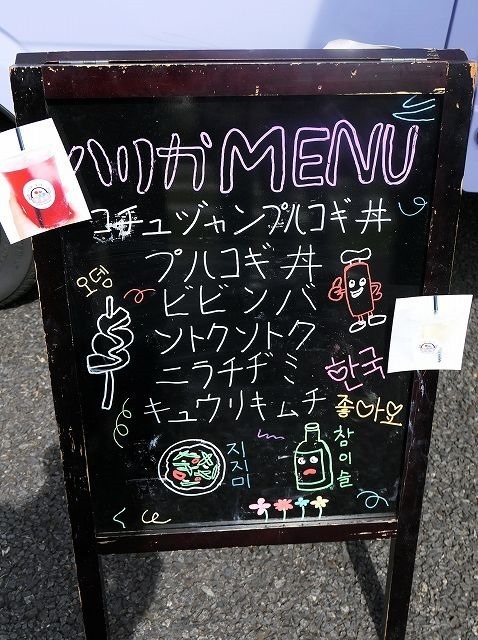 ハリカMENU
コチュヅャンプルコギ丼
プルコギ丼
ビビンバ
ソトクソトク
ニラチヂミ
キュウリキムチ
오뎅
한국
좋아요
지지미
참이슬